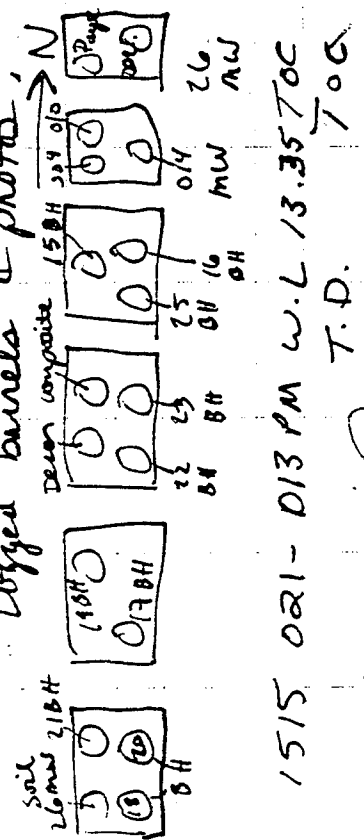 Logged barrels & photos,
N
Soil
26 mw 21 BH
18 20
BH
19 BH
17 BH
Decon composite
22 BH
23 BH
15 BH
25 BH
16 BH
224 010
014 MW
26 MW
1515 021-D13 PM W.L 13.35 TOC
T.D. TOC